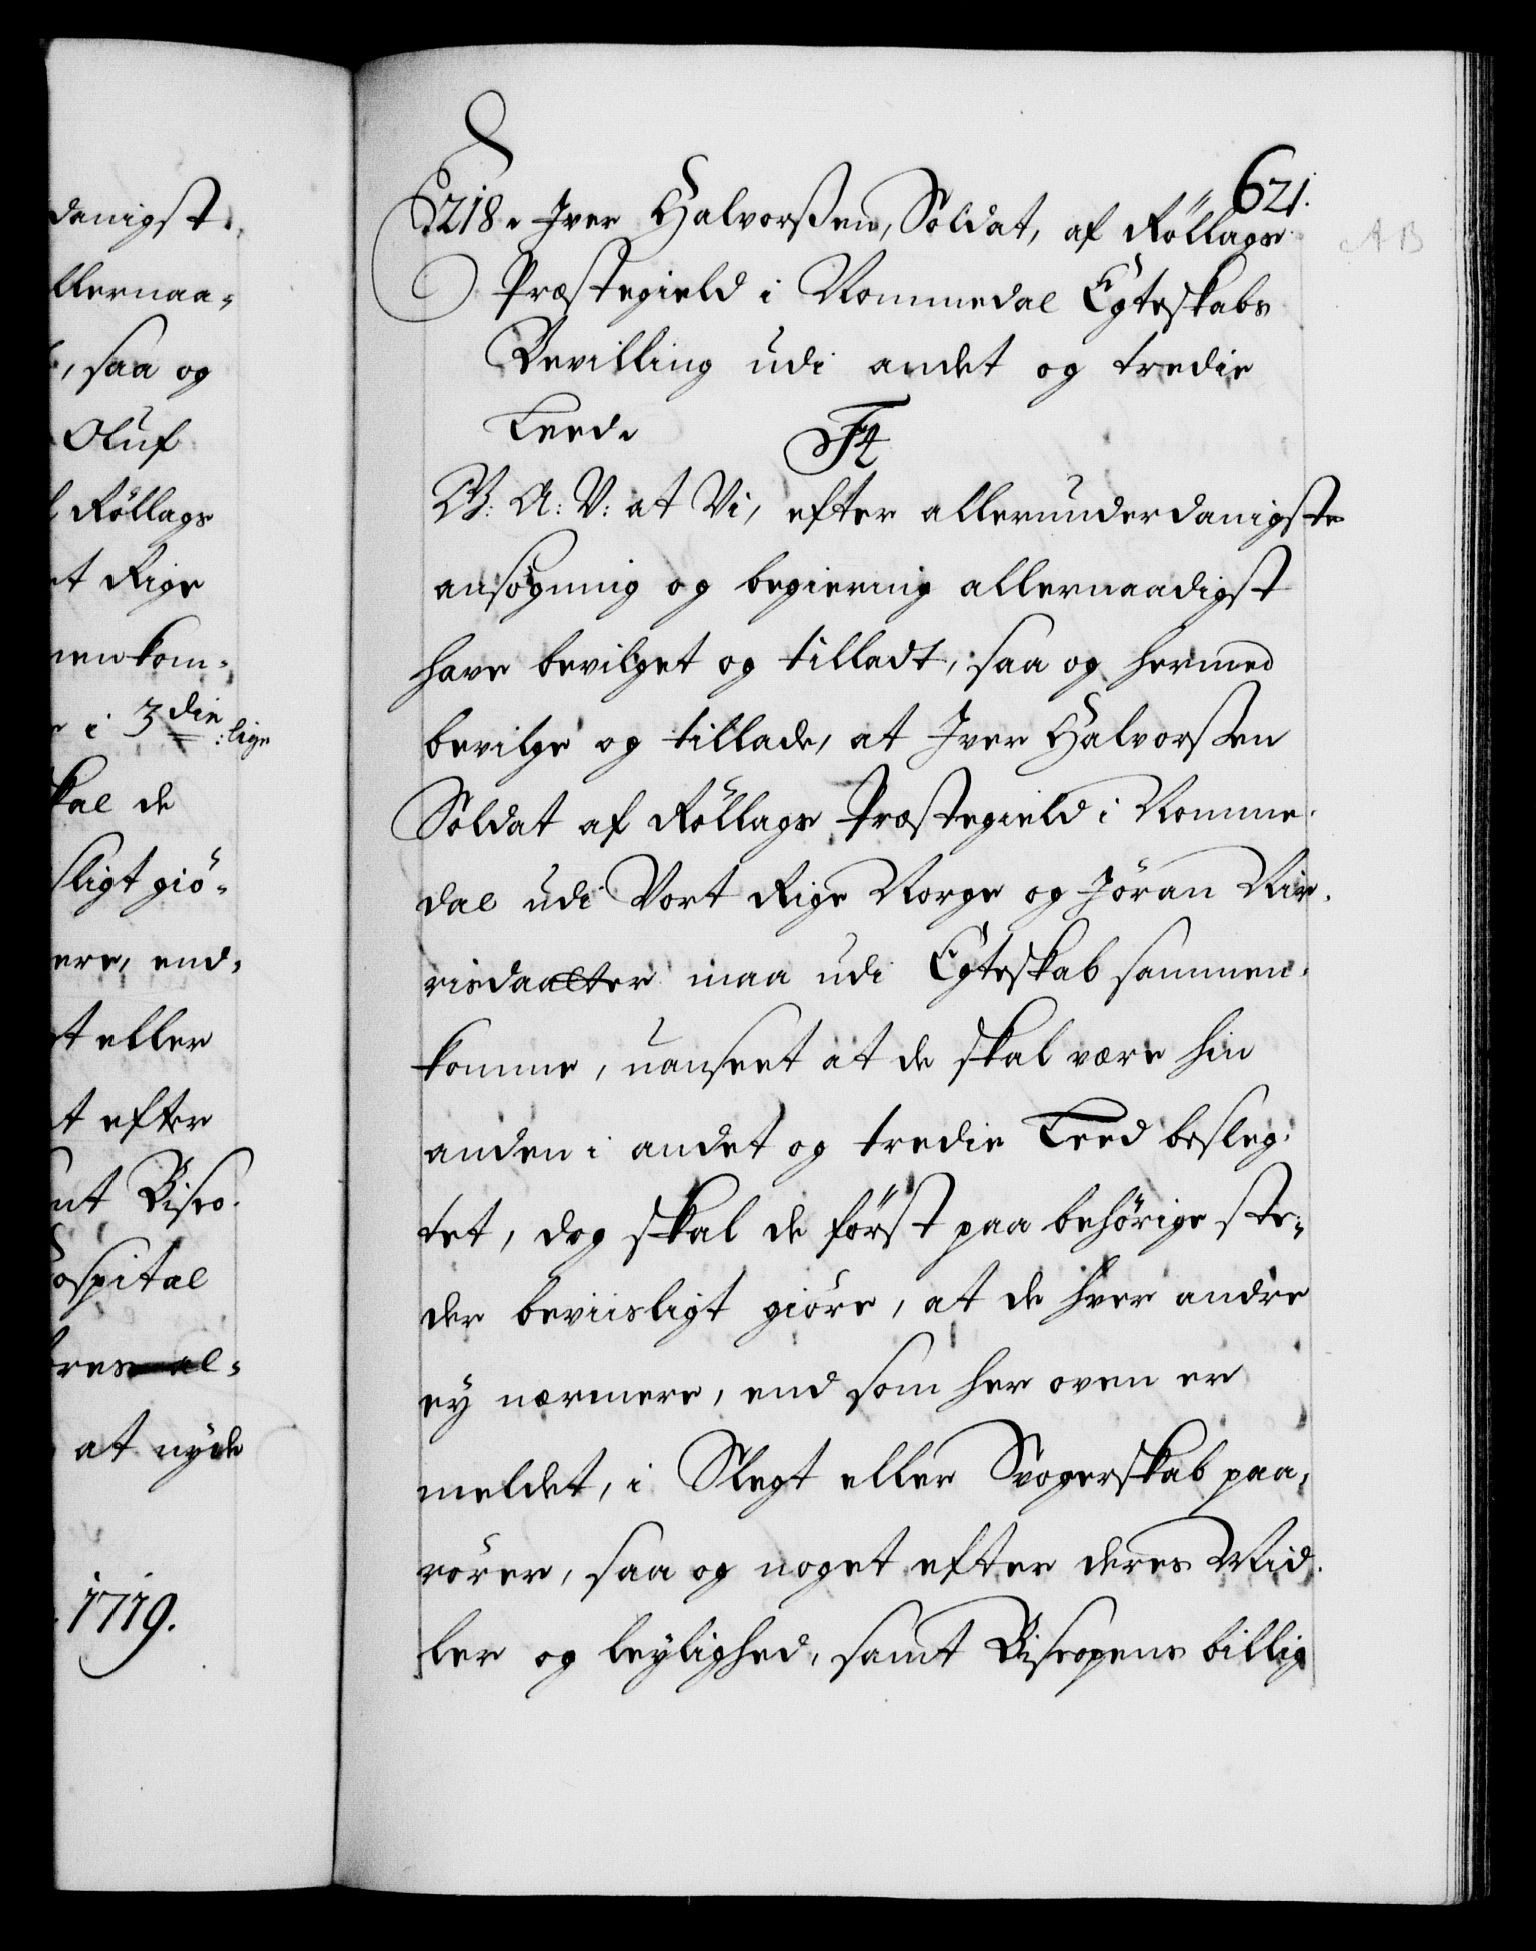 danigst
llernaa-
, saa og
Oluf
Röllags
et Rige
menkom-
e i 3die :lige
skal de
sligt giö-
ere, end-
et eller
t efter
mt Bisco-
Hospital
eres al-
at nyde
1719.
621.
AB
218. Iver Halvorssen, Soldat, af Röllags
Præstegield i Nommedal Egteskabs
Bevilling udi andet og tredie
Leed.
F4
G: A: V: at Vi, efter allerunderdanigste
ansøgning og begiering allernaadigst
have bevilget og tilladt, saa og hermed
bevilge og tillade, at Iver Halvorssen
Soldat af Röllags Præstegield i Nomme-
dal udi Vort Rige Norge og Jöran Nir-
risdaatter maa udi Egteskab sammen-
komme, uanseet at de skal være hin
anden i andet og tredie Leed besleg-
tet, dog skal de först paa behörige ste-
der beviisligt giöre, at de hver andre
ey nærmere, end som her oven er
meldet, i Slegt eller Svogerskab paa-
rörer, saa og noget efter deres Mid-
ler og leylighed, samt Biscopens billig